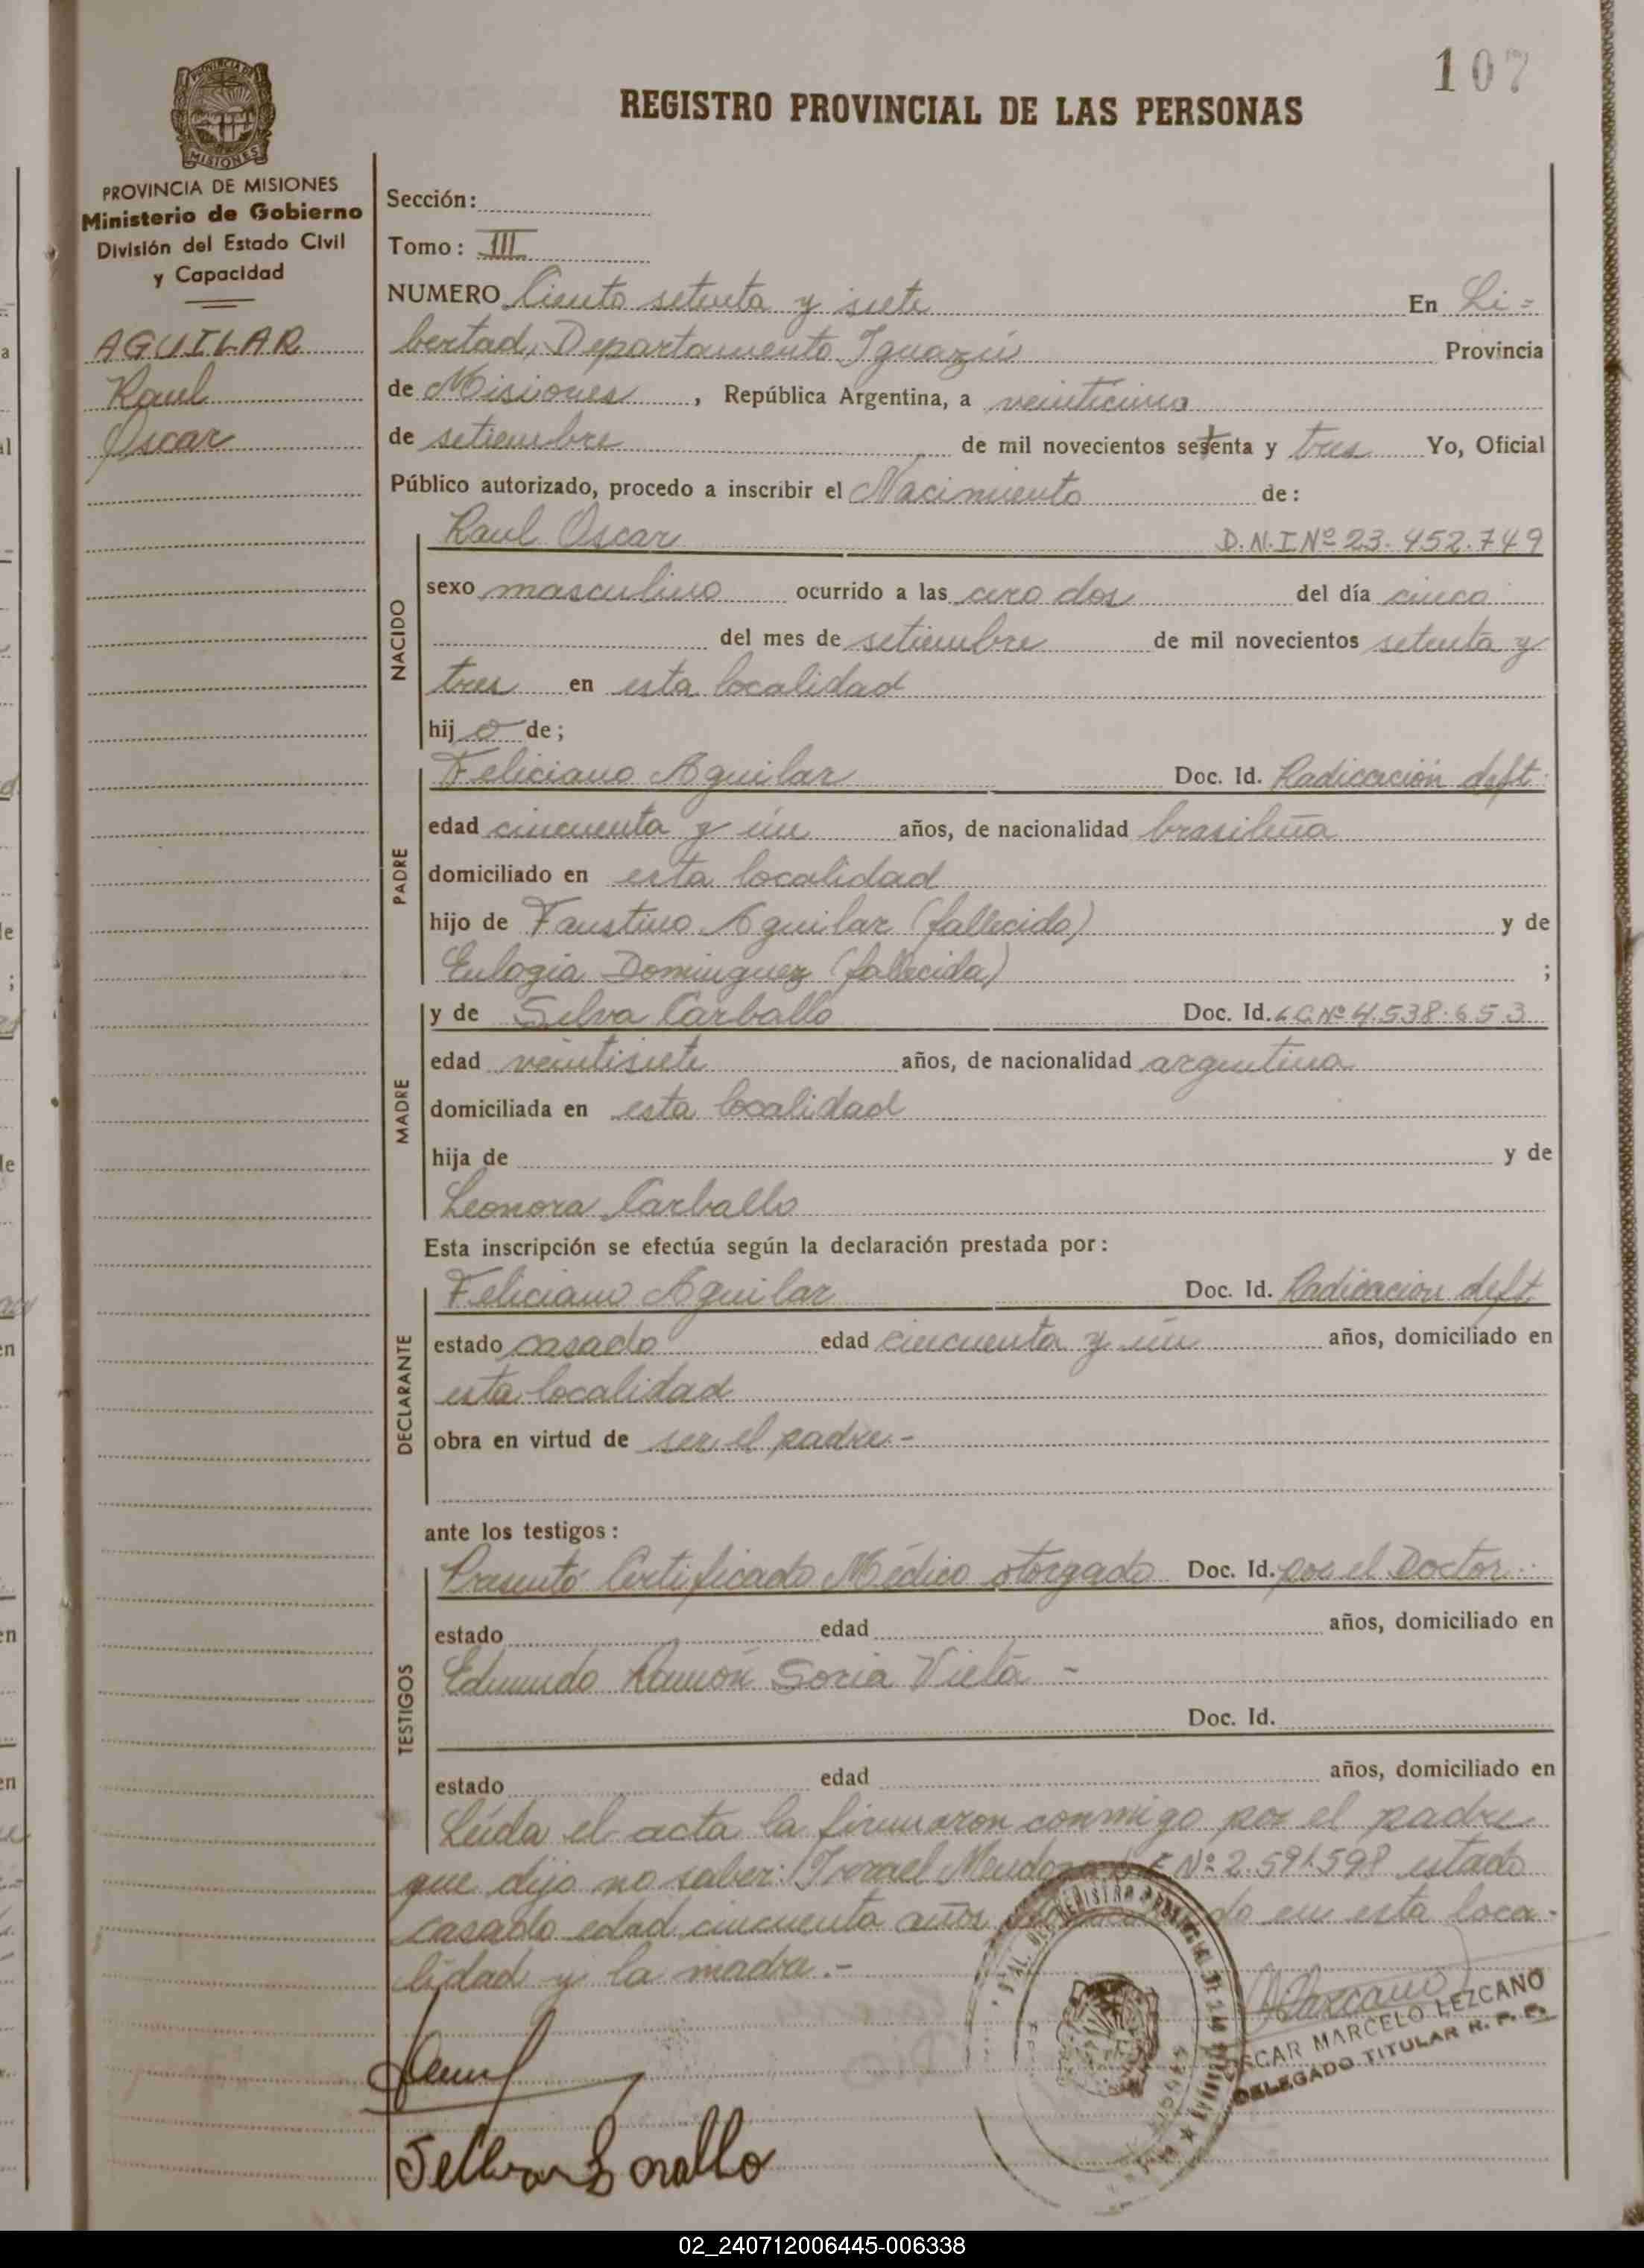 107
REGISTRO PROVINCIAL DE LAS PERSONAS
PROVINCIA DE MISIONES
Ministerio de Gobierno
División del Estado Civil
y Capacidad
AGUILAR
Raul
Oscar
Sección:
Tomo: III
NUMERO Ciento setenta y siete En Li=
bertad, Departamento Iguazú Provincia
de Misiones, República Argentina, a veinticinco
de setiembre de mil novecientos setenta y tres Yo, Oficial
Público autorizado, procedo a inscribir el Nacimiento de:
NACIDO
Raul Oscar D.N.I Nº 23.452.749
sexo masculino ocurrido a las cero dos del día cinco
del mes de setiembre de mil novecientos setenta y
tres en esta localidad
hijo de;
PADRE
Feliciano Aguilar Doc. Id. Radicación deft.
edad cincuenta y ún años, de nacionalidad brasileña
domiciliado en esta localidad
hijo de Faustino Aguilar (fallecido) y de
Eulogia Dominguez (fallecida) ;
MADRE
y de Selva Carballo Doc. Id. L.C. Nº 4.538.653
edad veintisiete años, de nacionalidad argentina
domiciliada en esta localidad
hija de y de
Leonora Carballo
Esta inscripción se efectúa según la declaración prestada por:
DECLARANTE
Feliciano Aguilar Doc. Id. Radicacion deft.
estado casado edad cincuenta y ún años, domiciliado en
esta localidad
obra en virtud de ser el padre.-
ante los testigos:
TESTIGOS
Presentó Certificado Médico otorgado Doc. Id. por el Doctor
estado edad años, domiciliado en
Edmundo Ramón Soria Vieta -
Doc. Id.
estado edad años, domiciliado en
Leída el acta la firmaron conmigo por el padre
que dijo no saber: Israel Mendoza Nº 2.591.598 estado
casado edad cincuenta años do en esta loca-
lidad y la madre.-
REGISTRO PROVINCIAL DE LAS
MISIONES
OSCAR MARCELO LEZCANO
DELEGADO TITULAR R. P. P.
02_240712006445-006338